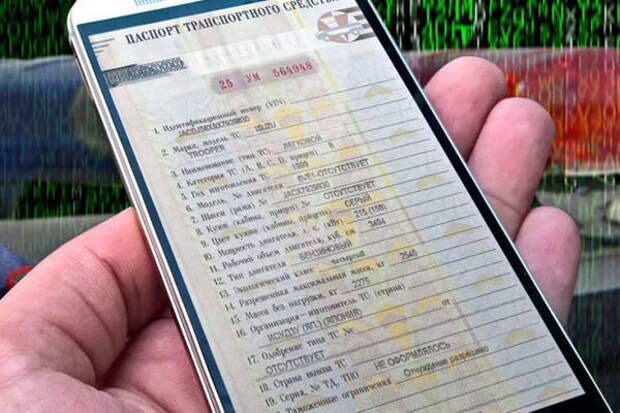 ПАСПОРТ ТРАНСПОРТНОГО СРЕДСТВА
25 УМ 564948
1. Идентификационный номер (VIN)
2. Марка, модель ТС ISUZU
TROOPER
3. Наименование (тип ТС) ЛЕГКОВОЙ
4. Категория ТС (А, В, С, D, прицеп) В
5. Год изготовления ТС 1999
6. Модель, № двигателя 6VE1-ОТСУТСТВУЕТ
7. Шасси (рама) №
8. Кузов (кабина, прицеп) № ОТСУТСТВУЕТ
9. Цвет кузова (кабины, прицепа) СЕРЫЙ
10. Мощность двигателя, л. с. (кВт) 215 (158)
11. Рабочий объем двигателя, куб. см 3494
12. Тип двигателя БЕНЗИНОВЫЙ
13. Экологический класс четвертый
14. Разрешенная максимальная масса, кг 2540
15. Масса без нагрузки, кг 2275
16. Организация – изготовитель ТС (страна)
ИСУДЗУ (ЯПОНИЯ)
17. Одобрение типа ТС № от
ОТСУТСТВУЕТ
18. Страна вывоза ТС
19. Серия, № ТД, ТПО НЕ ОФОРМЛЯЛОСЬ
Таможенные ограничения Отчуждение разрешено